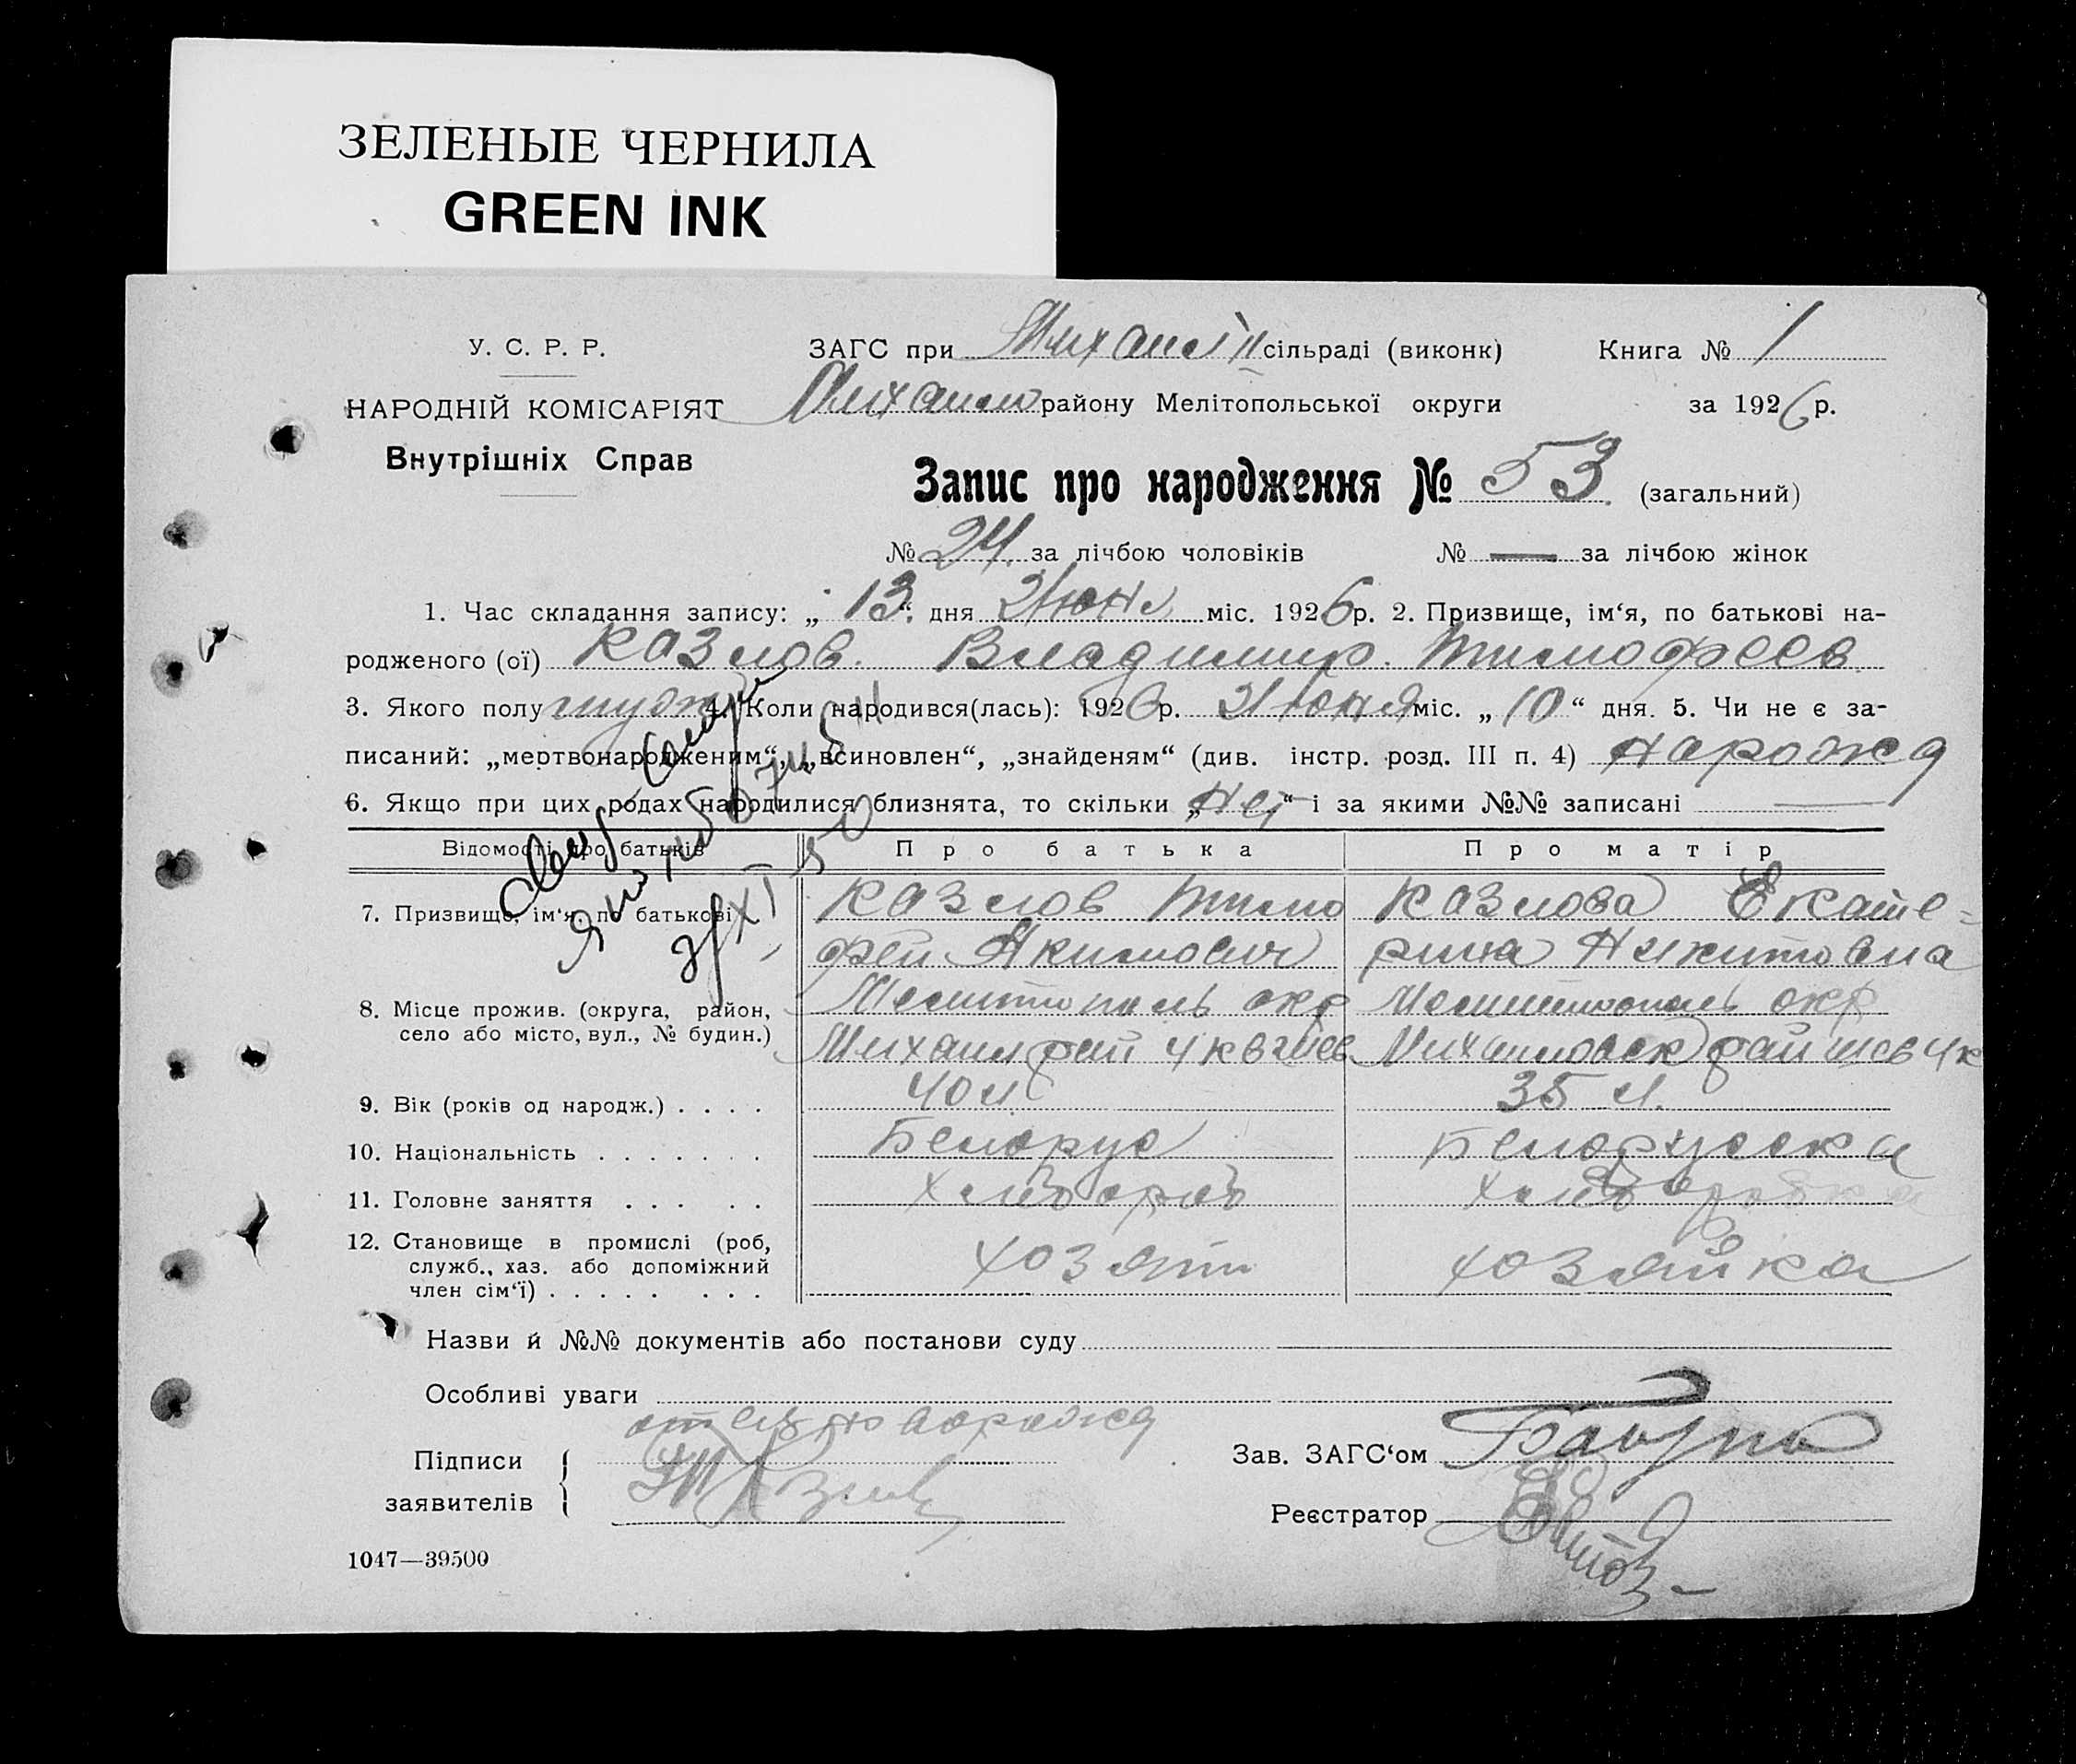 ЗЕЛЕНЫЕ ЧЕРНИЛА
GREEN INK
У. С. Р. Р.
НАРОДНІЙ КОМІСАРІЯТ
Внутрішніх Справ
ЗАГС при сільраді (виконк)
Книга № 1
району Мелітопольської округи
за 1926 р.
Запис про народження № 53 (загальний)
№ 24 за лічбою чоловіків № — за лічбою жінок
1. Час складання запису: „ 13 “ дня Июня міс. 1926 р. 2. Призвище, ім‘я, по батькові на-
родженого (ої) Казлов. Владимир. Тимофеев
3. Якого полу муж 4. Коли народився(лась): 1926 р. Июня міс. „ 10 “ дня. 5. Чи не є за-
писаний: „мертвонародженим“, „всиновлен“, „знайденям“ (див. інстр. розд. III п. 4) Нарожд
6. Якщо при цих родах народилися близнята, то скільки „Нет“ і за якими №№ записані —
Відомості про батьків Про батька Про матір
7. Призвище, ім‘я, по батькові
Казлов Тимо
фей Акимович
Казлова Екате-
рина Никитовна
8. Місце прожив. (округа, район,
село або місто, вул., № будин.)
Мелитополь окр
Михаил рай
Мелитополь окр
Михайловск рай
9. Вік (років од народж.) . . . . 40 л. 35 л.
10. Національність . . . . . . . Белорус Белоруска
11. Головне заняття . . . . . Хлебороб
12. Становище в промислі (роб,
служб., хаз. або допоміжний
член сім‘ї) . . . . . . . .
хозяин хозяйка
Назви й №№ документів або постанови суду
Особливі уваги
отец
Підписи
заявителів
Зав. ЗАГС‘ом
Реєстратор
1047—39500